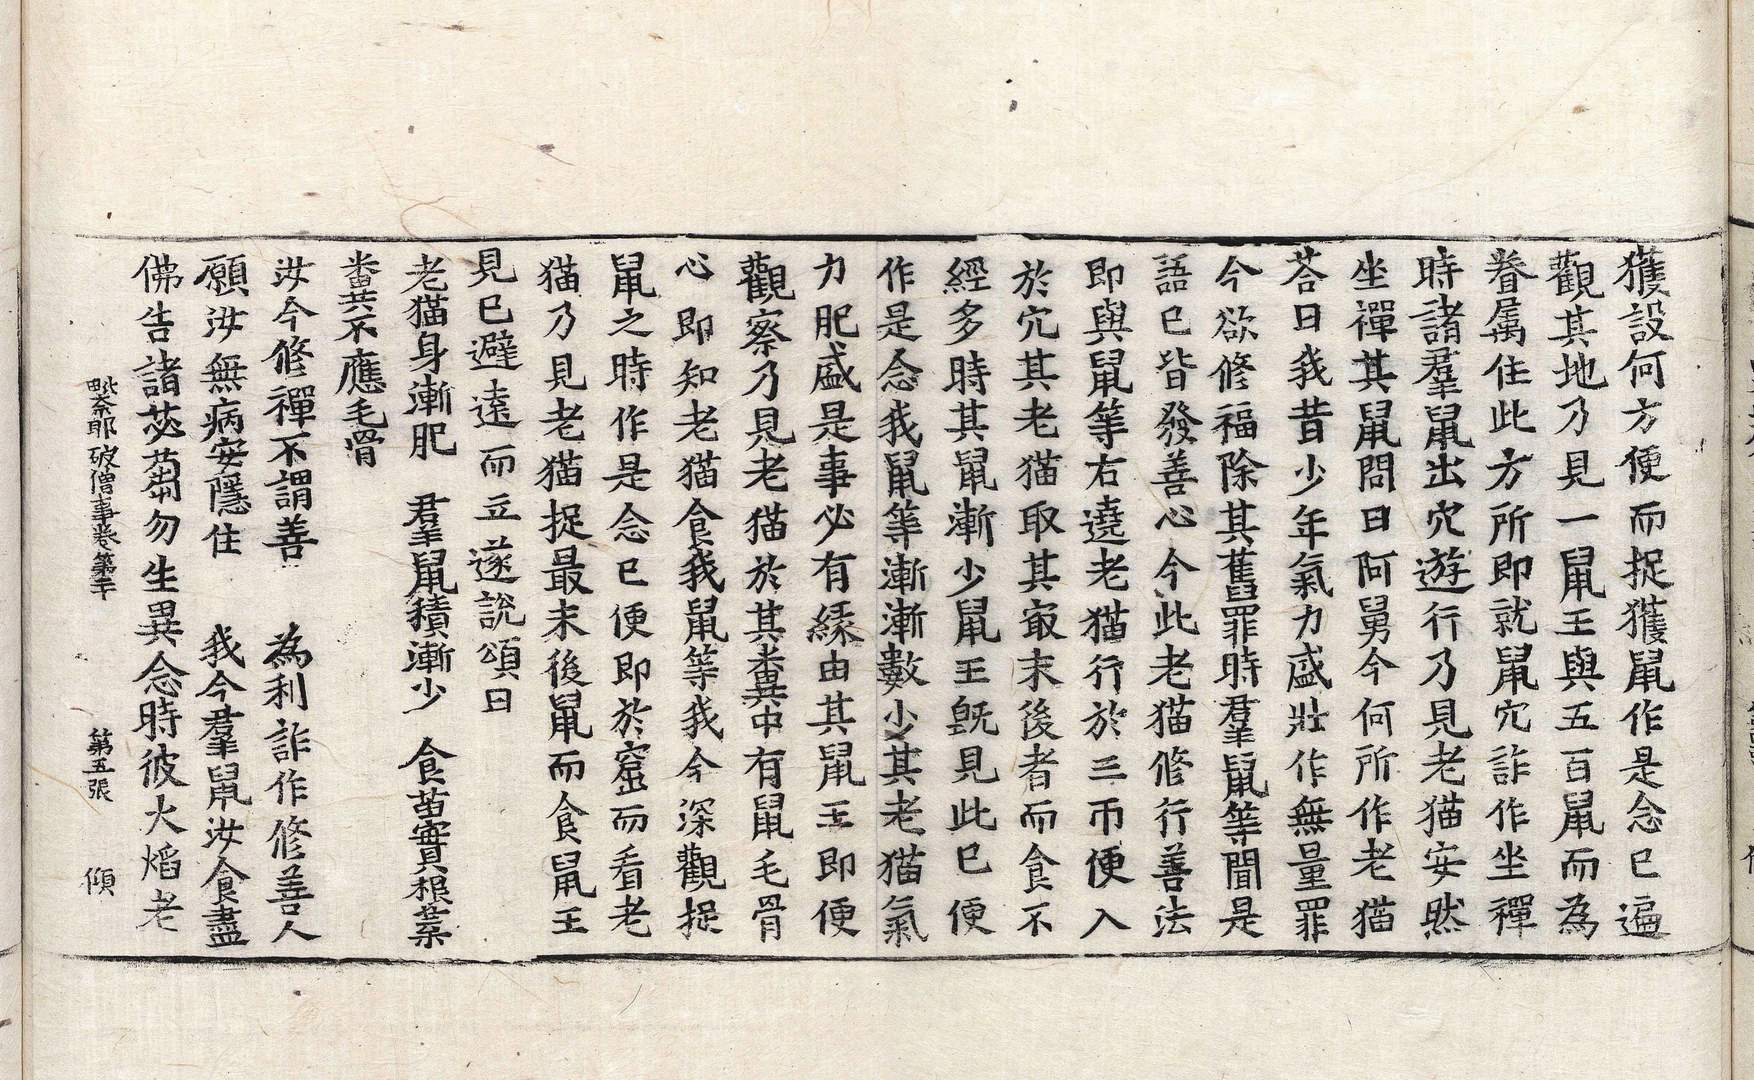 獲設何方便而捉獲鼠作是念已遍
觀其地乃見一鼠王與五百鼠而為
眷属住此方所即就鼠穴詐作坐禪
時諸羣鼠出穴遊行乃見老猫安然
坐禪其鼠問曰阿舅今何所作老猫
荅曰我昔少年氣力盛壯作無量罪
今欲修福除其舊罪時羣鼠等聞是
語已皆發善心今此老猫修行善法
即與鼠等右遶老猫行於三帀便入
於穴其老猫取其㝡末後者而食不
經多時其鼠漸少鼠王旣見此已便
作是念我鼠等漸漸數少其老猫氣
力肥盛是事必有緣由其鼠王即便
觀察乃見老猫於其糞中有鼠毛骨
心即知老猫食我鼠等我今深觀捉
鼠之時作是念已便即於窟而看老
猫乃見老猫捉最末後鼠而食鼠王
見已避遠而立遂說頌曰
老猫身漸肥　羣鼠積漸少　食苗實根葉
糞不應毛骨
汝今修禪不謂善　為利詐作修善人
願汝無病安隱住　我今羣鼠汝食盡
佛告諸苾蒭勿生異念時彼大焰老
毗奈耶破僧事卷第二十　第五張　傾